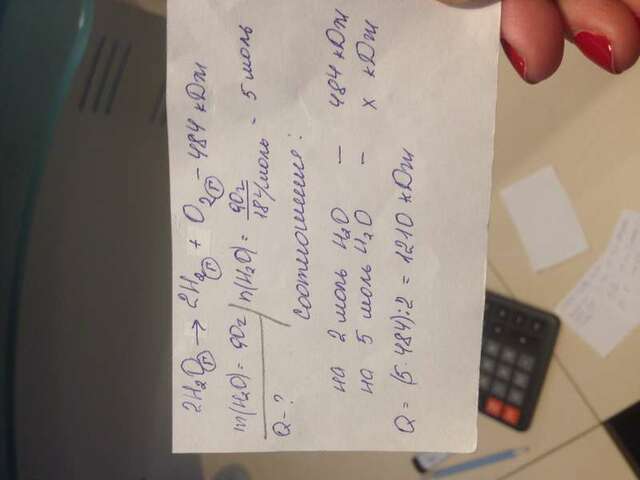 2H₂O(г) → 2H₂(г) + O₂(г) – 484 кДж
m(H₂O) = 90г
Q – ?
n(H₂O) = 90г / 18г/моль = 5 моль
соотношение:
на 2 моль H₂O — 484 кДж
на 5 моль H₂O – x кДж
Q = (5·484):2 = 1210 кДж